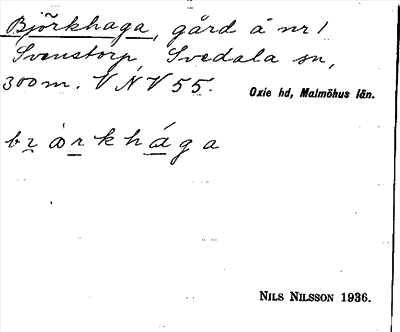 Björkhaga, gård å nr 1
Svenstorp, Svedala sn,
300 m. V N V 55.
Oxie hd, Malmöhus län.
NILS NILSSON 1936.